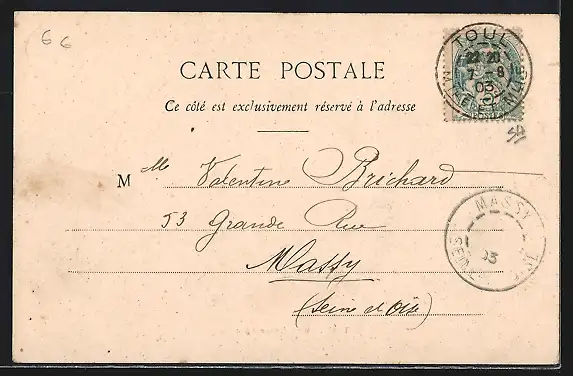 66
TOUL
22 20
7 - 8
03
MEURTHE-ET-MLLE
CARTE POSTALE
Ce côté est exclusivement réservé à l'adresse
M lle Valentine Brichard
53 Grande Rue
Massy
(Seine et Oise)
MASSY
03